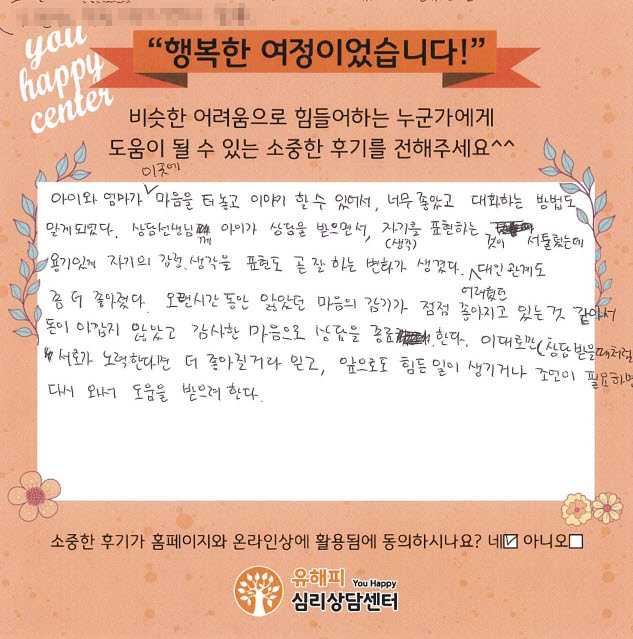 you
happy
center
“행복한 여정이었습니다!”
비슷한 어려움으로 힘들어하는 누군가에게
도움이 될 수 있는 소중한 후기를 전해주세요^^
이곳에
아이와 엄마가 마음을 터놓고 이야기 할 수 있어서, 너무 좋았고 대화하는 방법도
알게되었다. 상담선생님께 아이가 상담을 받으면서, 자기를 표현하는 것이 서툴렀는데
(생각)
용기있게 자기의 감정, 생각을 표현도 곧 잘 하는 변화가 생겼다. 대인관계도
어려웠던
좀 더 좋아졌다. 오랜시간 동안 앓았던 마음의 감기가 점점 좋아지고 있는 것 같아서
돈이 아깝지 않았고 감사한 마음으로 상담을 종료 한다. 이대로만 (상담 받을때처럼)
서로가 노력한다면 더 좋아질거라 믿고, 앞으로도 힘든 일이 생기거나 조언이 필요하면
다시 와서 도움을 받으려 한다.
소중한 후기가 홈페이지와 온라인상에 활용됨에 동의하시나요? 네☑ 아니오☐
유해피 You Happy
심리상담센터